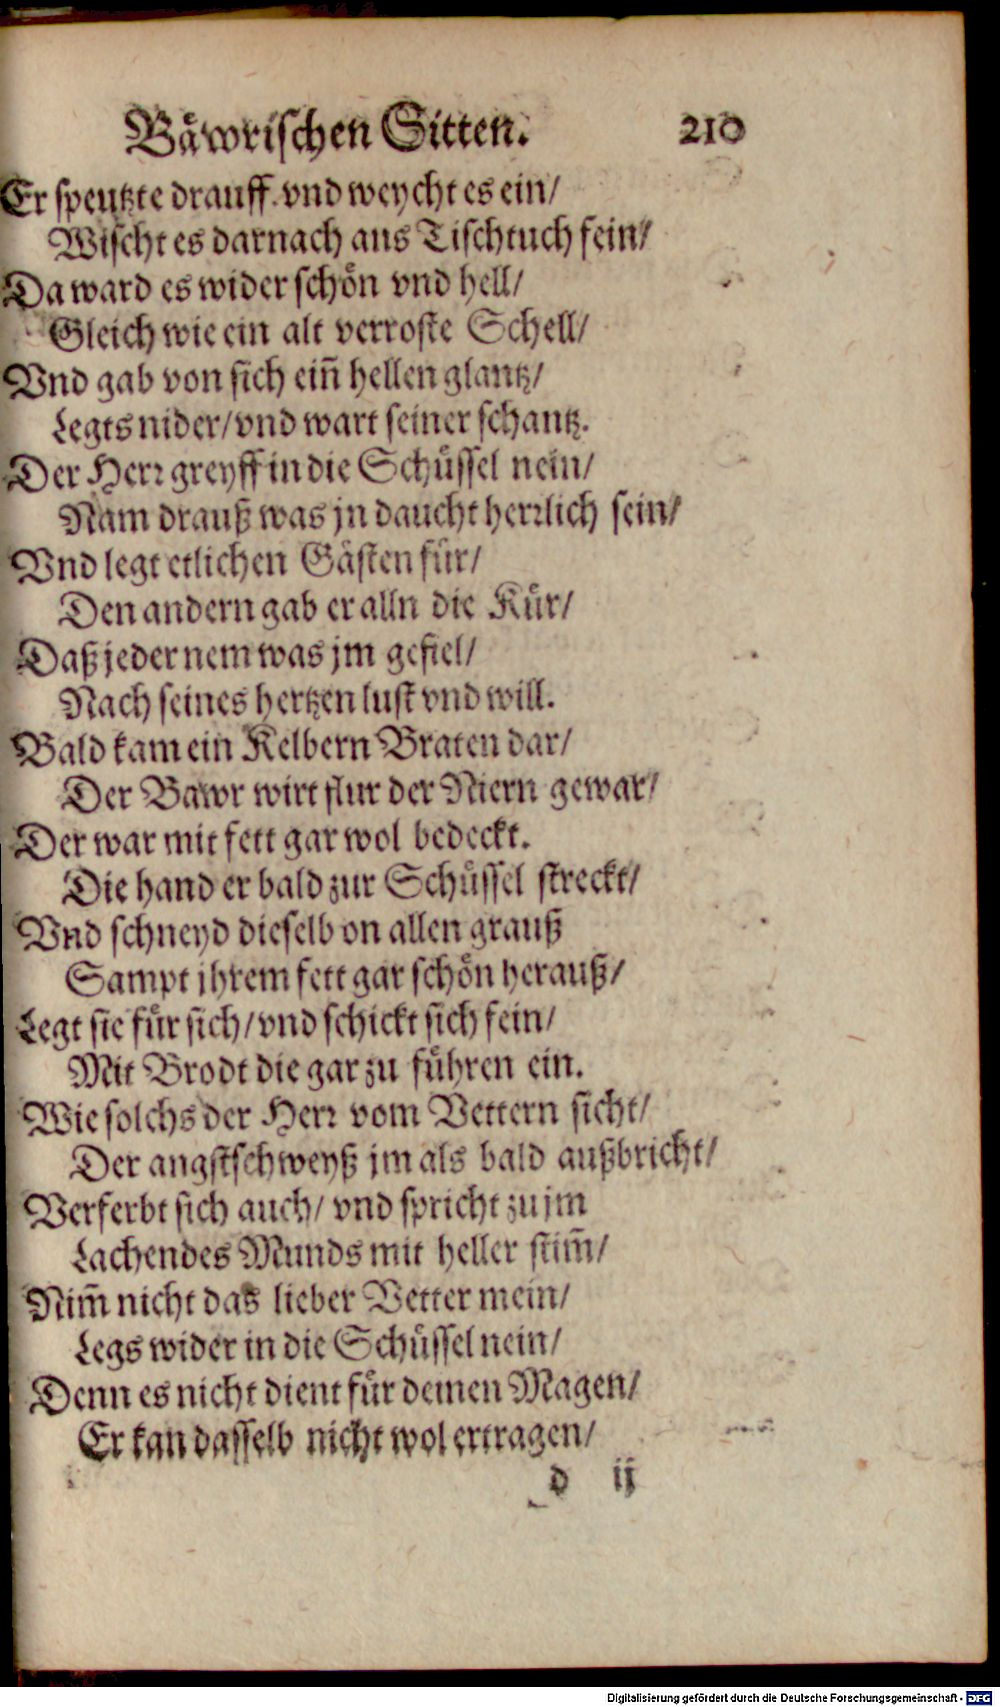 Baͤwrischen Sitten. 210
Er speutzte drauff vnd weycht es ein/
Wischt es darnach ans Tischtuch fein/
Da ward es wider schoͤn vnd hell/
Gleich wie ein alt verroste Schell/
Vnd gab von sich ein̄ hellen glantz/
Legts nider/ vnd wart seiner schantz.
Der Herr greyff in die Schuͤssel nein/
Nam drauß was jn daucht herrlich sein/
Vnd legt etlichen Gaͤsten fuͤr/
Den andern gab er alln die Kuͤr/
Daß jeder nem was jm gefiel/
Nach seines hertzen lust vnd will.
Bald kam ein Kelbern Braten dar/
Der Bawr wirt flur der Niern gewar/
Der war mit fett gar wol bedeckt.
Die hand er bald zur Schuͤssel streckt/
Vnd schneyd dieselb on allen grauß
Sampt jhrem fett gar schoͤn herauß/
Legt sie fuͤr sich/ vnd schickt sich fein/
Mit Brodt die gar zu fuͤhren ein.
Wie solchs der Herr vom Vettern sicht/
Der angstschweyß jm als bald außbricht/
Verferbt sich auch/ vnd spricht zu jm
Lachendes Munds mit heller stim̄/
Nim̄ nicht das lieber Vetter mein/
Legs wider in die Schuͤssel nein/
Denn es nicht dient fuͤr deinen Magen/
Er kan dasselb nicht wol ertragen/
d ij
Digitalisierung gefördert durch die Deutsche Forschungsgemeinschaft - DFG